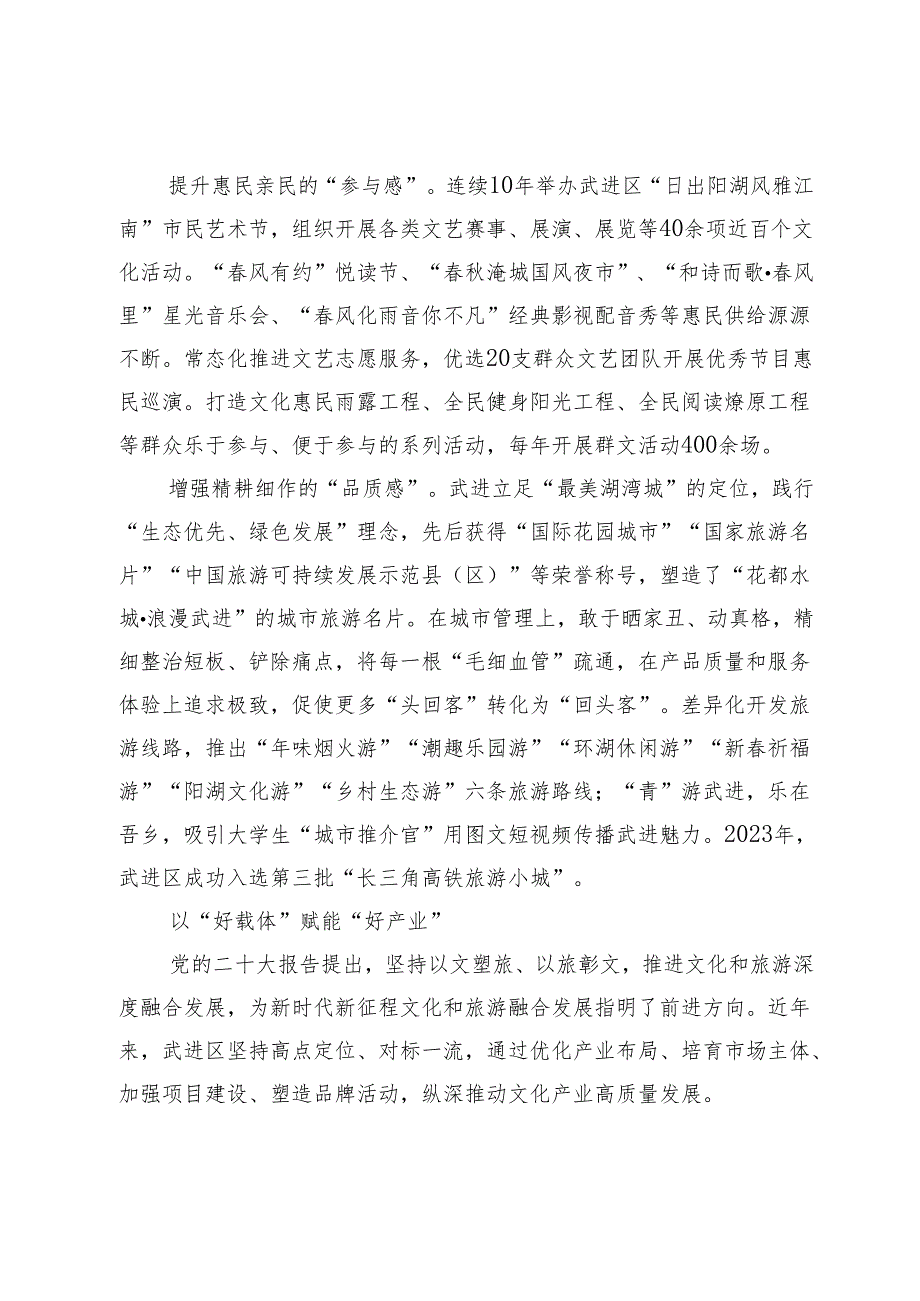 提升惠民亲民的“参与感”。连续10年举办武进区“日出阳湖风雅江
南”市民艺术节，组织开展各类文艺赛事、展演、展览等40余项近百个文
化活动。“春风有约”悦读节、“春秋淹城国风夜市”、“和诗而歌•春风
里”星光音乐会、“春风化雨音你不凡”经典影视配音秀等惠民供给源源
不断。常态化推进文艺志愿服务，优选20支群众文艺团队开展优秀节目惠
民巡演。打造文化惠民雨露工程、全民健身阳光工程、全民阅读燎原工程
等群众乐于参与、便于参与的系列活动，每年开展群文活动400余场。
增强精耕细作的“品质感”。武进立足“最美湖湾城”的定位，践行
“生态优先、绿色发展”理念，先后获得“国际花园城市”“国家旅游名
片”“中国旅游可持续发展示范县（区）”等荣誉称号，塑造了“花都水
城•浪漫武进”的城市旅游名片。在城市管理上，敢于晒家丑、动真格，精
细整治短板、铲除痛点，将每一根“毛细血管”疏通，在产品质量和服务
体验上追求极致，促使更多“头回客”转化为“回头客”。差异化开发旅
游线路，推出“年味烟火游”“潮趣乐园游”“环湖休闲游”“新春祈福
游”“阳湖文化游”“乡村生态游”六条旅游路线；“青”游武进，乐在
吾乡，吸引大学生“城市推介官”用图文短视频传播武进魅力。2023年，
武进区成功入选第三批“长三角高铁旅游小城”。
以“好载体”赋能“好产业”
党的二十大报告提出，坚持以文塑旅、以旅彰文，推进文化和旅游深
度融合发展，为新时代新征程文化和旅游融合发展指明了前进方向。近年
来，武进区坚持高点定位、对标一流，通过优化产业布局、培育市场主体、
加强项目建设、塑造品牌活动，纵深推动文化产业高质量发展。